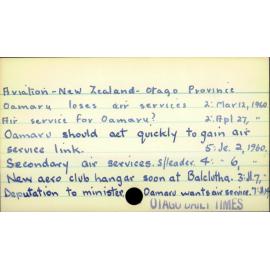 Aviation - New Zealand - Otago Province
Oamaru loses air services 2: Mar 12, 1960
Air service for Oamaru? 2: Apl 27, "
Oamaru should act quickly to gain air
service link. 5: Je. 2, 1960.
Secondary air services. s/leader. 4: - 6, "
New aero club hangar soon at Balclutha. 3: Jl 7, "
Deputation to minister Oamaru wants air service. 7:
OTAGO DAILY TIMES